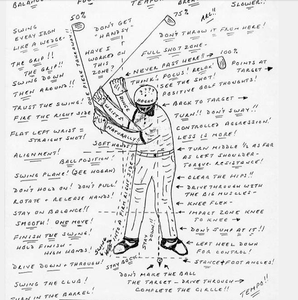 BALANCE
TEMPO
SLOWER..
50%
75%
AH!!
SWING
EVERY IRON
LIKE A WEDGE-
DON'T GET
HANDSY!
DON'T THROW IT FROM HERE!
THE GRIP!!
THE GRIP!!
HAVE I
WORKED ON
THIS ZONE?
FULL SHOT ZONE-
100%
SWING DOWN
THEN AROUND!!
NEVER FAST HERE!!
POINTS AT
TARGET
THINK! FOCUS! RELAX!
SEE THE SHOT!
POSITIVE GOLF THOUGHTS!
TRUST THE SWING!
BACK TO TARGET
FIRE THE RIGHT SIDE
TURN!! DON'T SWAY!!
FLAT LEFT WRIST =
STRAIGHT SHOT!
CONTROLLED AGGRESSION!
LESS IS MORE!
SOFT HANDS
ALIGNMENT!
TURN MIDDLE 1/2 AS FAR
AS LEFT SHOULDER-
TORQUE-RESISTANCE!
BALL POSITION!
SWING PLANE! (SEE HOGAN)
CLEAR THE HIPS!!
DON'T HOLD ON! DON'T PULL!
DRIVE THROUGH WITH
THE BIG MUSCLES-
ROTATE - RELEASE HAND!
KNEE FLEX-
STAY ON BALANCE!!
IMPACT ZONE KNEE
TO KNEE
SMOOTH! ONE MOVE!
FINISH THE SWING!
DON'T JUMP AT IT!!
HOLD FINISH-
HIGH HANDS!
LET HEEL DOWN
FOR CONTROL!
DRIVE DOWN + THROUGH!
STANCE/FOOT ANGLES!
DON'T MAKE THE BALL
THE TARGET - DRIVE THROUGH
COMPLETE THE CIRCLE!!
SWING THE CLUB!
TURN IN THE BARREL!
TEMPO!!